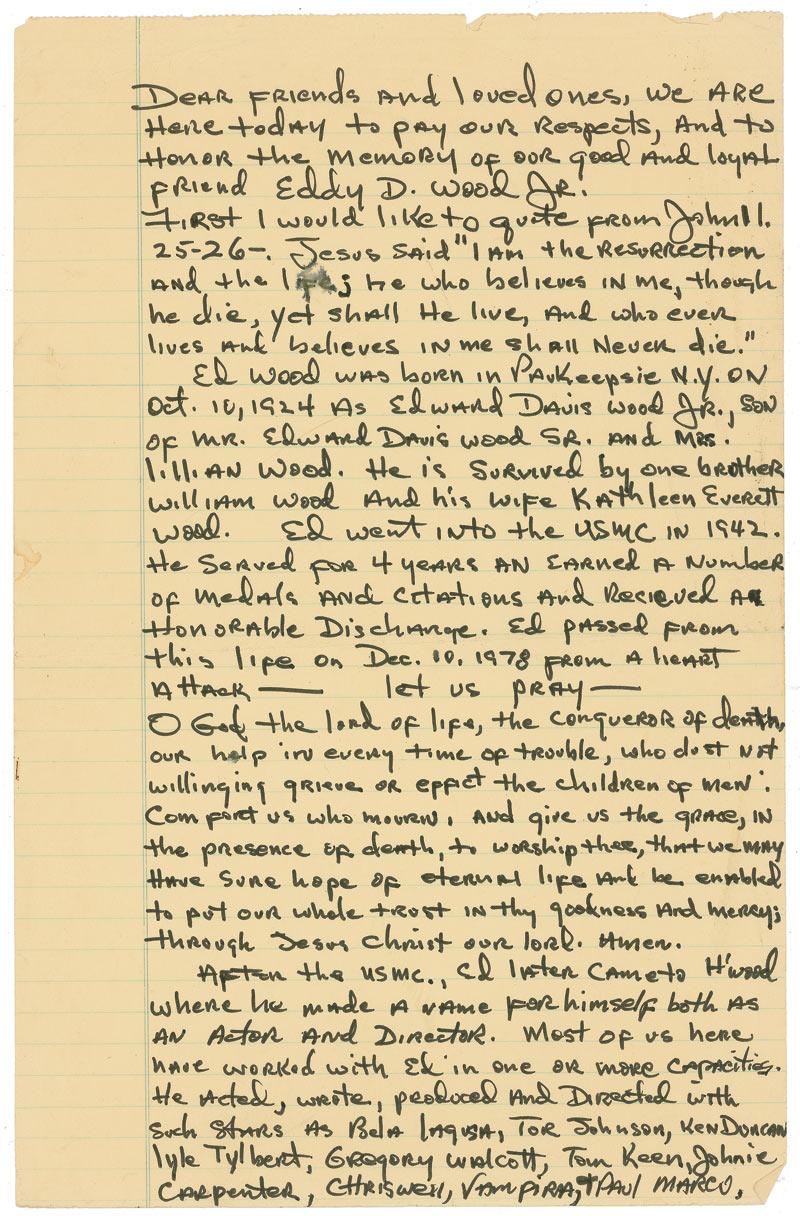 Dear friends and loved ones, we are
here today to pay our respects, and to
honor the memory of our good and loyal
friend Eddy D. Wood Jr.
First I would like to quite from John 11.
25-26-. Jesus said "I am the resurrection
and the life; he who believes in me, though
he die, yet shall He live, and who ever
lives and believes in me shall never die."
Ed Wood was born in Paukeepsie N.Y. on
Oct. 10, 1924 as Edward Davis Wood Jr., son
of Mr. Edward Davis Wood Sr. and Mrs.
Lillian Wood. He is survived by one brother
William Wood and his wife Kathleen Everett
Wood. Ed went into the USMC in 1942.
He served for 4 years an earned a number
of medals and citations and recieved an
Honorable Discharge. Ed passed from
this life on Dec. 10, 1978 from a heart
attack — let us pray —
O God the lord of life, the conqueror of death,
our help in every time of trouble, who dost not
willinging grieve or effict the children of men.
Comfort us who mourn, and give us the grace, in
the presence of death, to worship thee, that we may
have sure hope of eternal life and be enabled
to put our whole trust in thy goodness and mercy;
through Jesus Christ our lord. Amen.
After the USMC., Ed later came to H'wood
where he made a name for himself both as
an Actor and Director. Most of us here
have worked with Ed in one or more capacities.
He acted, wrote, produced and Directed with
such stars as Bela Lagusa, Tor Johnson, Ken Duncan
Lyle Tylbert, Gregory Walcott, Tom Keen, Johnie
Carpenter, Chriswell, Vampira, + Paul Marco,